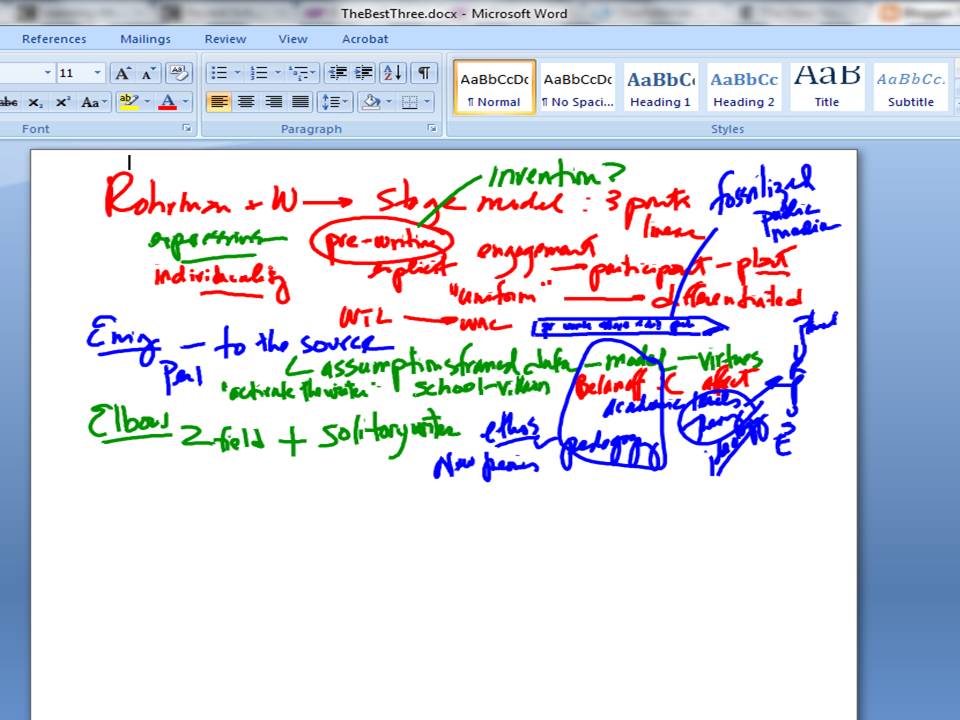 TheBestThree.docx - Microsoft Word
References Mailings Review View Acrobat
11 A A Aa
abc x₂ x² Aa ab A
Font Paragraph Styles
AaBbCcDc AaBbCcDc AaBbC AaBbCc AaB AaBbCc.
¶ Normal ¶ No Spaci... Heading 1 Heading 2 Title Subtitle
invention?
Rohrman + W → Stage model : 3 points
linear
fossilized
public
media
expressive
pre-writing
individuality
explicit
engagement → participant - plant
"uniform" → differentiated
WTL → WAC
Emig - to the source
Perl
assumptions framed data - model - virtues
"activate the writer" school-villain Belanoff C affect
academic
Elbow 2 field + solitary writer
ethos
pedagogy